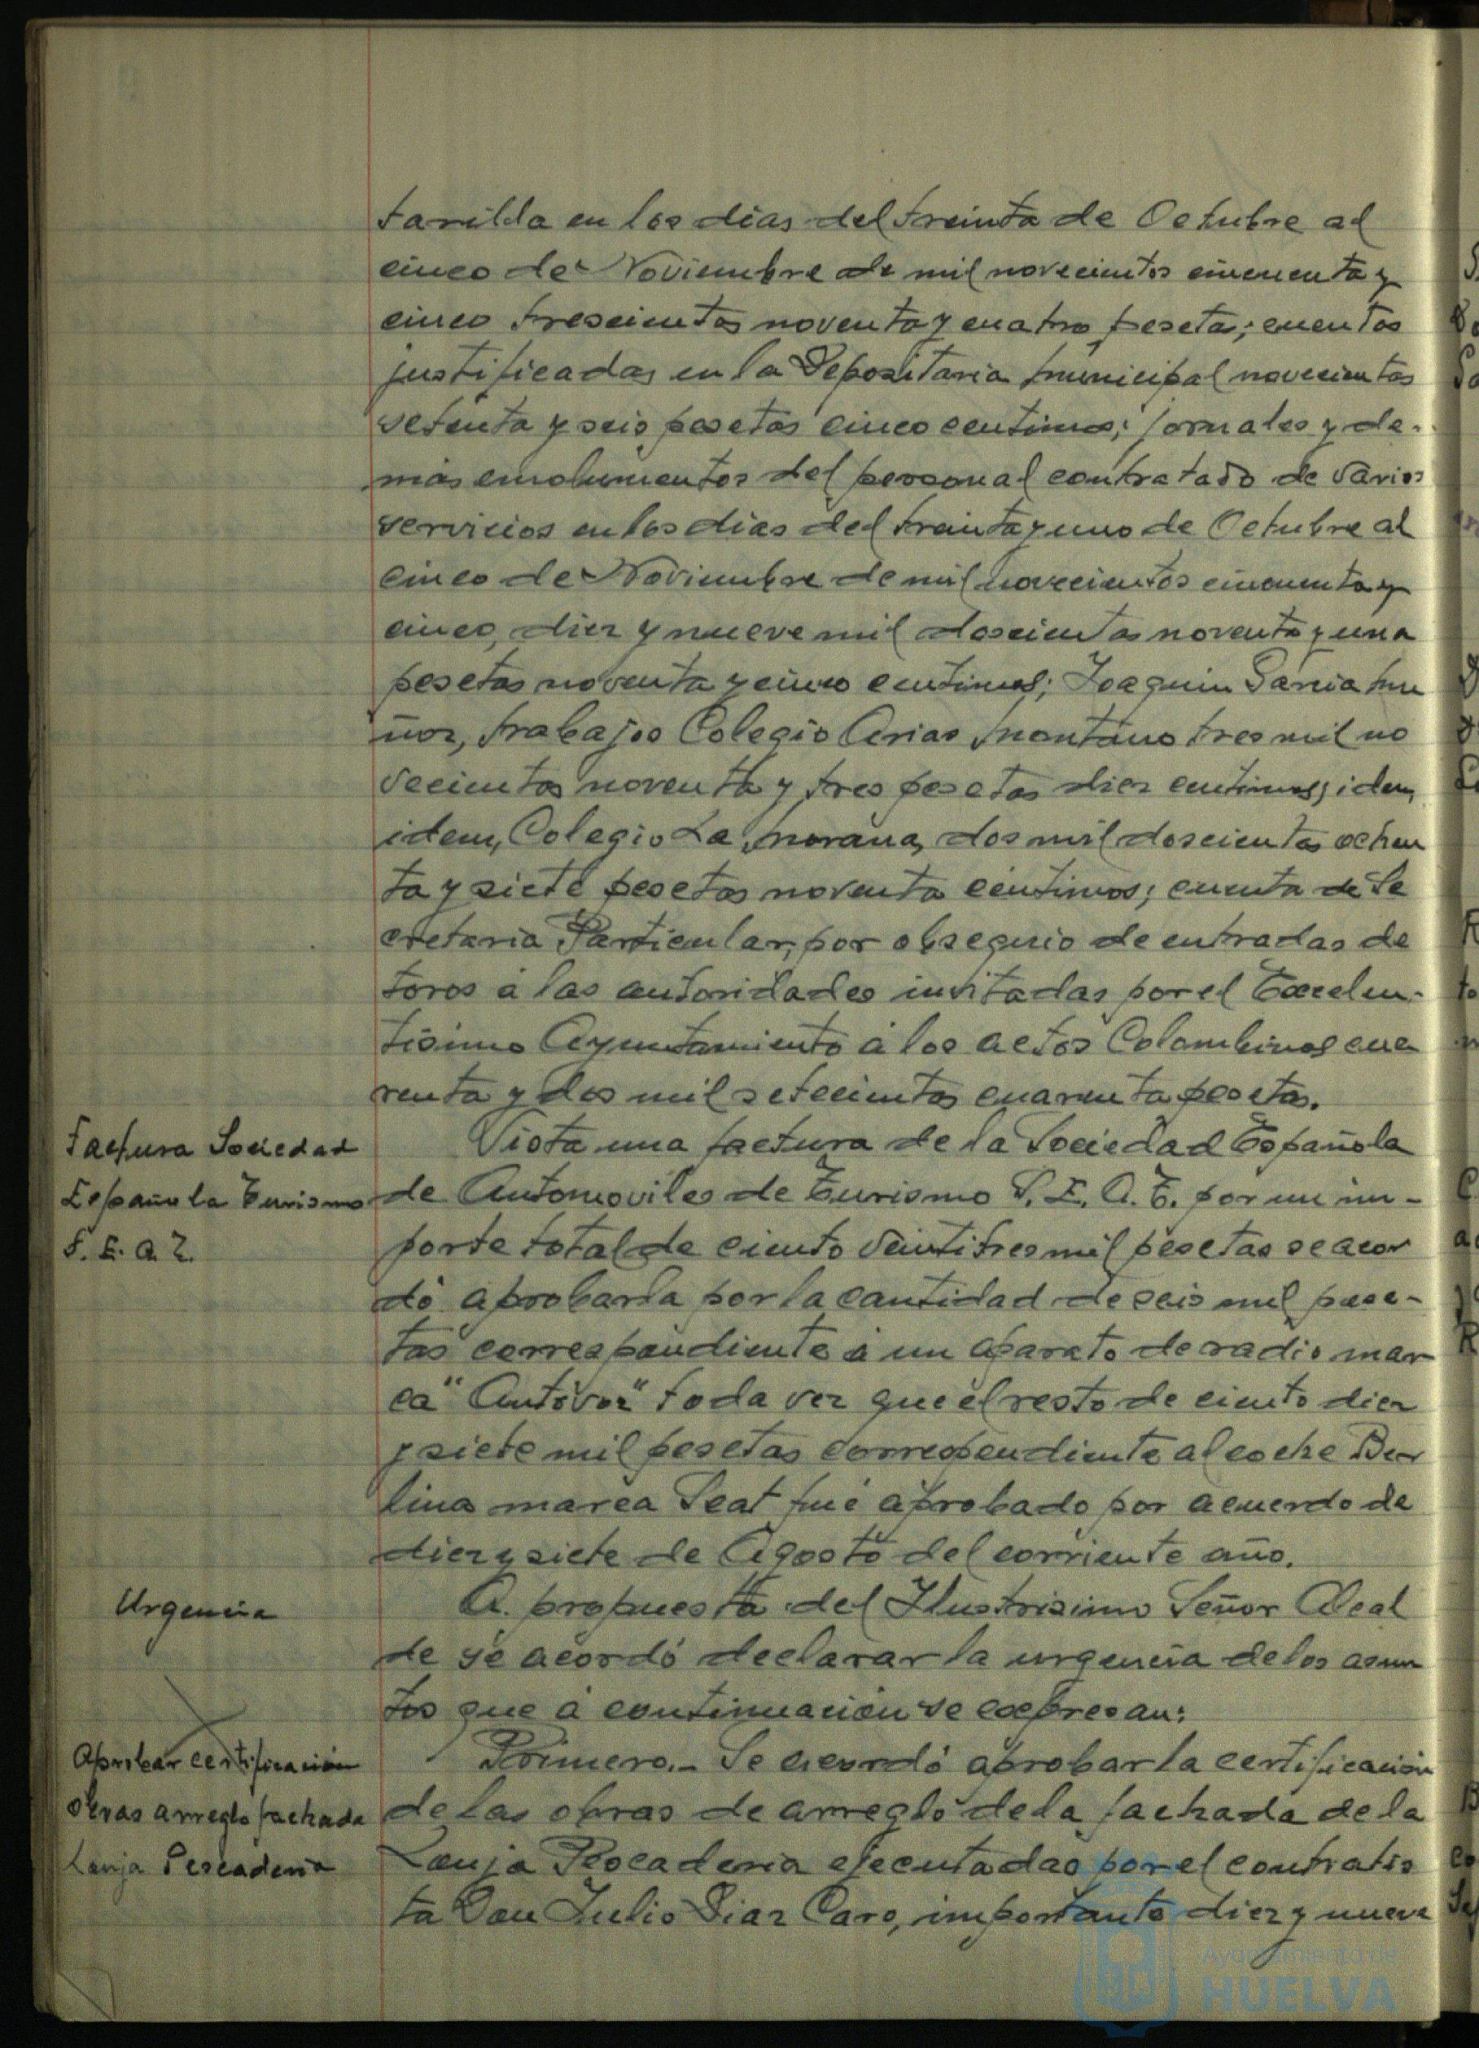 tarilla en los dias del treinta de Octubre al
cinco de Noviembre de mil novecientos cincuenta y
cinco trescientas noventa y cuatro pesetas; cuentas
justificadas en la Depositaria Municipal novecientas
setenta y seis pesetas cinco centimos; jornales y de-
más emolumentos del personal contratado de varios
servicios en los dias del treinta y uno de Octubre al
cinco de Noviembre de mil novecientos cincuenta y
cinco, diez y nueve mil doscientas noventa y una
pesetas noventa y cinco centimos; Joaquin Garcia Mu
ñoz, trabajos Colegio Arias Montano tres mil no
vecientas noventa y tres pesetas diez centimos; idem,
idem, Colegio La Morana, dos mil doscientas ochen
ta y siete pesetas noventa centimos; cuenta de Se
cretaria Particular, por obsequio de entradas de
toros á las autoridades invitadas por el Excelen-
tísimo Ayuntamiento á los actos Colombinos cua
renta y dos mil setecientas cuarenta pesetas.
Factura Sociedad
Española Turismo
S. E. A. T.
Vista una factura de la Sociedad Española
de Automoviles de Turismo S. E. A. T. por un im-
porte total de ciento veintitres mil pesetas se acor
dó aprobarla por la cantidad de seis mil pese-
tas correspondiente á un aparato de radio mar
ca "Autovoz" toda vez que el resto de ciento diez
y siete mil pesetas correspondiente al coche Ber
lina marca Seat fué aprobado por acuerdo de
diez y siete de Agosto del corriente año.
Urgencia
A propuesta del Ilustrisimo Señor Alcal
de se acordó declarar la urgencia de los asun
tos que á continuación se expresan:
Aprobar certificación
obras arreglo fachada
Lonja Pescaderia
Primero.- Se acordó aprobar la certificación
de las obras de arreglo de la fachada de la
Lonja Pescaderia ejecutadas por el contratis
ta Don Julio Diaz Caro, importante diez y nueve
Ayuntamiento de
HUELVA